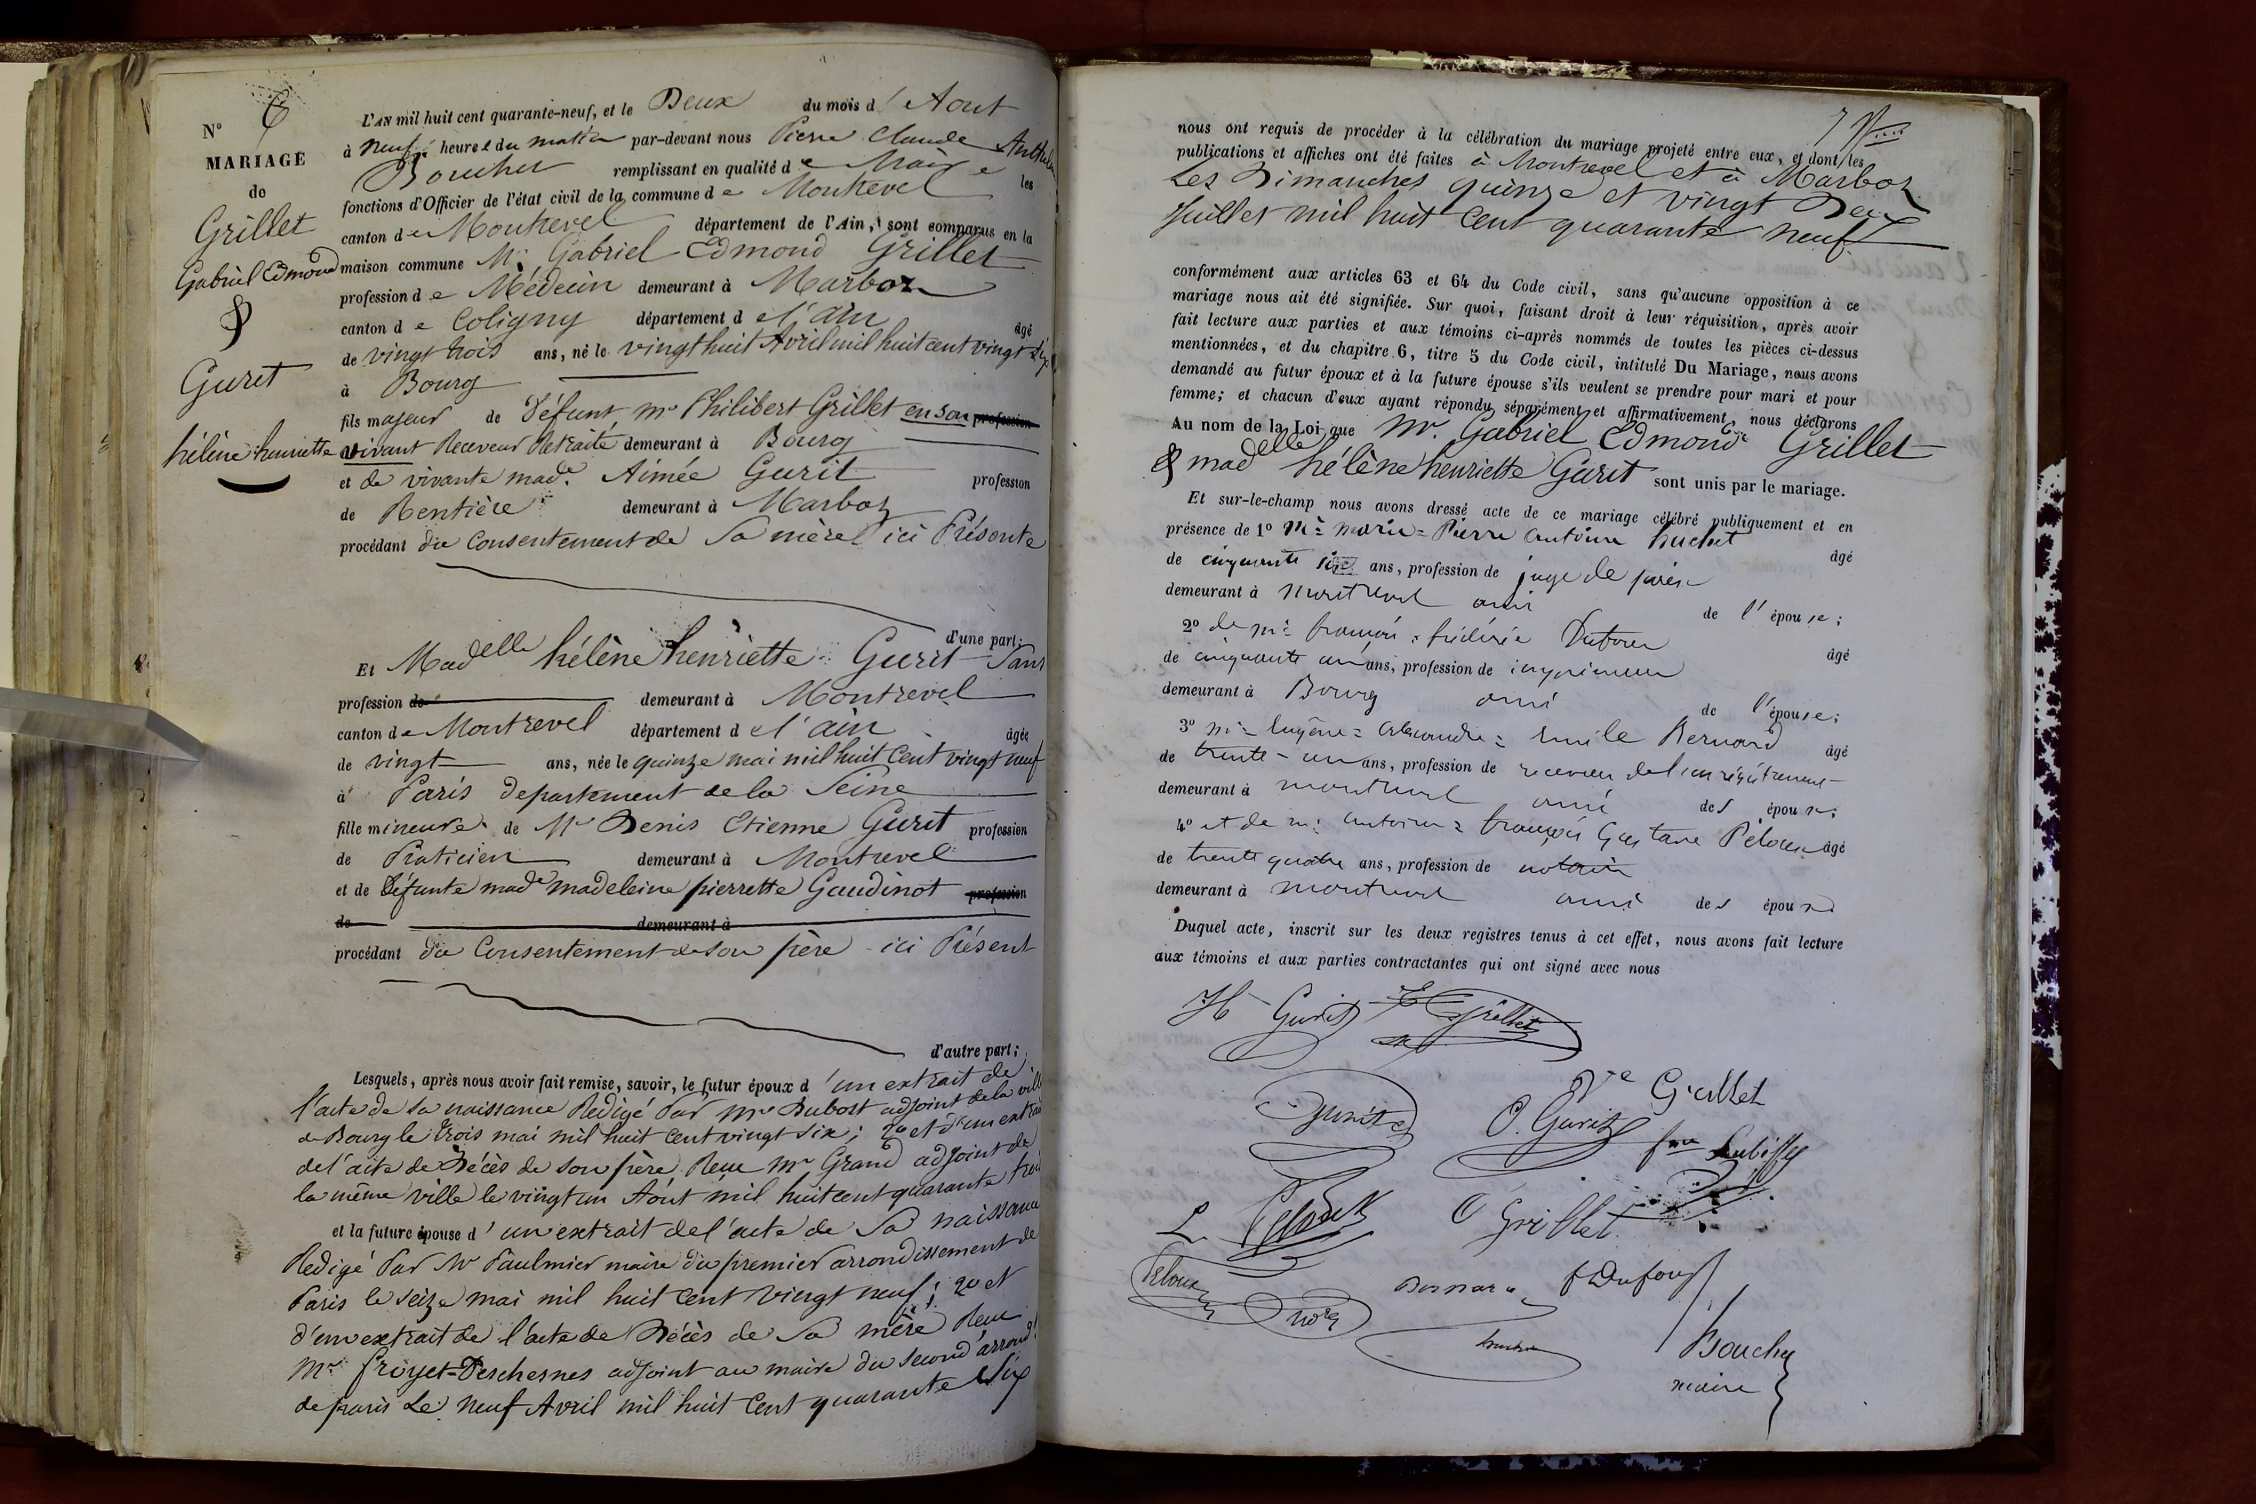 N° 6
MARIAGE
de
Grillet
Gabriel Edmond
&
Guret
hélène henriette
L'AN mil huit cent quarante-neuf, et le Deux du mois d'Aout
à neuf heures du matin par-devant nous Pierre Claude Anthelme
Boucher remplissant en qualité de Maire les
fonctions d'Officier de l'état civil de la commune de Montrevel
canton de Montrevel département de l'Ain, sont comparus en la
maison commune Mr. Gabriel Edmond Grillet
profession de Médecin demeurant à Marboz
canton de Coligny département de l'ain âgé
de vingt trois ans, né le vingt huit Avril mil huit cent vingt Six
à Bourg
fils majeur de Défunt mr Philibert Grillet en son profession
vivant Receveur Retraité demeurant à Bourg
et de vivante made. Aimée Gurit profession
de Rentière demeurant à Marboz
procédant du Consentement de Sa mère ici Présente
d'une part;
Et Madelle hélène henriette Gurit Sans
profession de demeurant à Montrevel
canton de Montrevel département de l'ain âgée
de vingt ans, née le quinze mai mil huit Cent vingt neuf
à Paris departement de la Seine
fille mineure de Mr Denis Etienne Gurit profession
de Praticien demeurant à Montrevel
et de Défunte made madeleine pierrette Gaudinot profession
de demeurant à
procédant du Consentement de son père ici Présent
d'autre part;
Lesquels, après nous avoir fait remise, savoir, le futur époux d'un extrait de
l'acte de sa naissance Redigé Par mr Dubost adjoint de la ville
de Bourg le trois mai mil huit cent vingt six; 2° et d'un extrait
de l'acte de Décès de son père Reçu mr Grand adjoint de
la même ville le vingt un Août mil huit cent quarante trois
et la future épouse d'un extrait de l'acte de Sa naissance
Redigé Par Mr Paulmier maire du premier arrondissement de
Paris le seize mai mil huit Cent vingt neuf; 2° et
d'un extrait de l'acte de Décès de Sa mère Reçu
Mr froyet-Deschesnes adjoint au maire du second arrondt
de paris Le neuf Avril mil huit Cent quarante Six
nous ont requis de procéder à la célébration du mariage projeté entre eux, et dont les
publications et affiches ont été faites à Montrevel et à Marboz
Les Dimanches quinze et vingt Deux
Juillet mil huit Cent quarante neuf
conformément aux articles 63 et 64 du Code civil, sans qu'aucune opposition à ce
mariage nous ait été signifiée. Sur quoi, faisant droit à leur réquisition, après avoir
fait lecture aux parties et aux témoins ci-après nommés de toutes les pièces ci-dessus
mentionnées, et du chapitre 6, titre 5 du Code civil, intitulé Du Mariage, nous avons
demandé au futur époux et à la future épouse s'ils veulent se prendre pour mari et pour
femme; et chacun d'eux ayant répondu séparément et affirmativement, nous déclarons
Au nom de la Loi que Mr. Gabriel Edmond Grillet
& madelle hélène henriette Gurit sont unis par le mariage.
Et sur-le-champ nous avons dressé acte de ce mariage célébré publiquement et en
présence de 1° Mr marie-Pierre antoine huchet âgé
de cinquante six ans, profession de juge de paix
demeurant à montrevel ami de l'épouse;
2° de mr françois frédéric Dufour âgé
de cinquante un ans, profession de imprimeur
demeurant à Bourg ami de l'épouse;
3° mr Eugène-alexandre-Emile Bernard âgé
de trente-un ans, profession de receveur de l'enregistrement
demeurant à montrevel ami des époux;
4° et de mr antoine françois Gustave Péloux âgé
de trente quatre ans, profession de notaire
demeurant à montrevel ami des époux
Duquel acte, inscrit sur les deux registres tenus à cet effet, nous avons fait lecture
aux témoins et aux parties contractantes qui ont signé avec nous
H Gurit E Grillet
Ve Grillet
Gurit O. Gurit
O Grillet
L. Peloux
Peloux Nore Bernard f Dufour
Boucher
maire